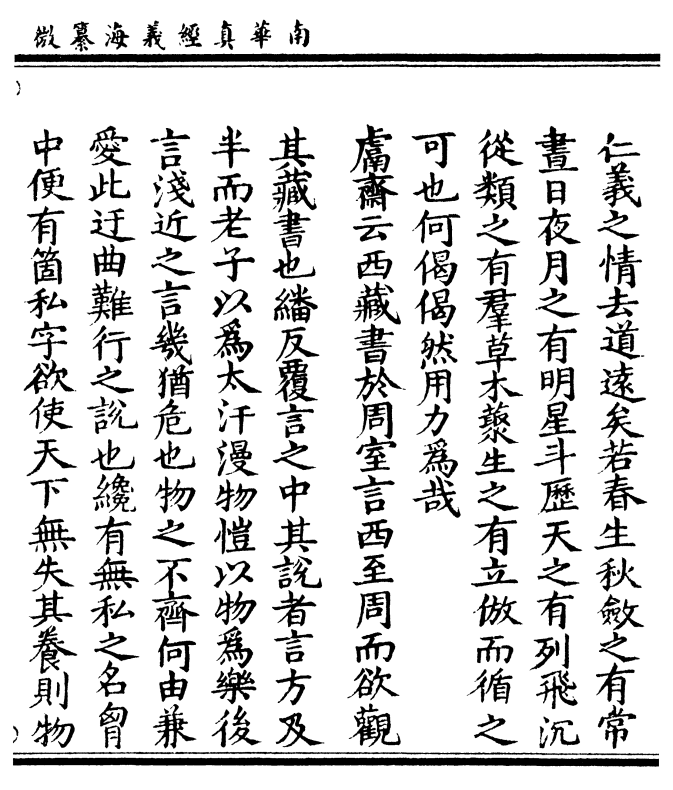 南華真經義海纂微
仁義之情去道遠矣若春生秋斂之有常
晝日夜月之有明星斗歷天之有列飛沉
從類之有羣草木藂生之有立倣而循之
可也何偈偈然用力為哉
鬳齋云西藏書於周室言西至周而欲觀
其藏書也繙反覆言之中其說者言方及
半而老子以為太汗漫物愷以物為樂後
言淺近之言幾猶危也物之不齊何由兼
愛此迂曲難行之說也纔有無私之名胷
中便有箇私字欲使天下無失其養則物